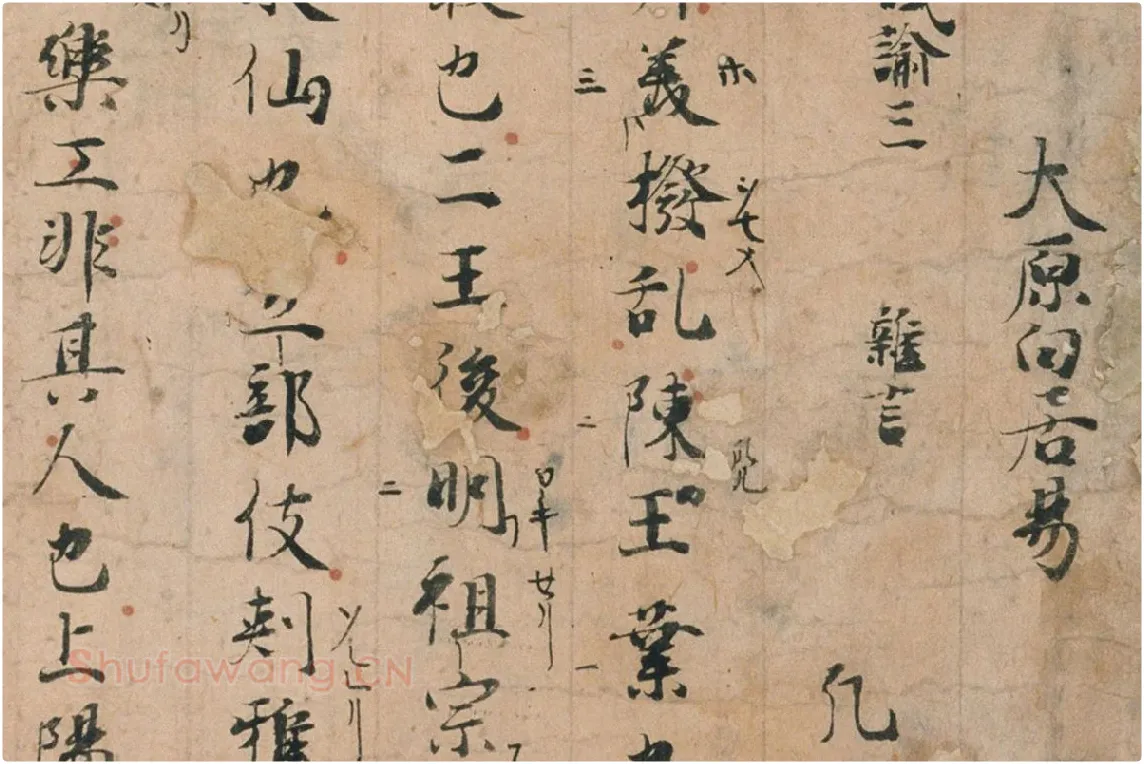 大原白居易
諭三 雜言 凡
義撥乱陳王業也
也二王後明祖宗
仙也立部伎刺雅
樂工非其人也上陽
Shufawang.CN